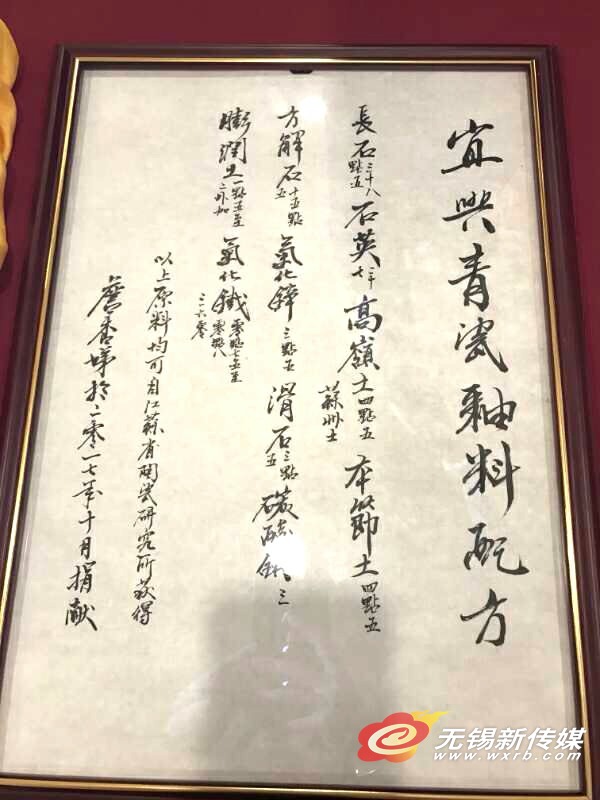 宜興青瓷釉料配方
長石三十八點五 石英二十七 高嶺土四點五 蘇州土 本節土四點五
方解石十五點五 氧化鋅三點五 滑石三點五 碳酸鋇三
膨潤土一點五至二外加 氧化鐵零點七五至零點八
以上原料均可自江蘇省陶瓷研究所获得
詹杏娣於二零一七年十月捐献
无锡新传媒
www.wxrb.com